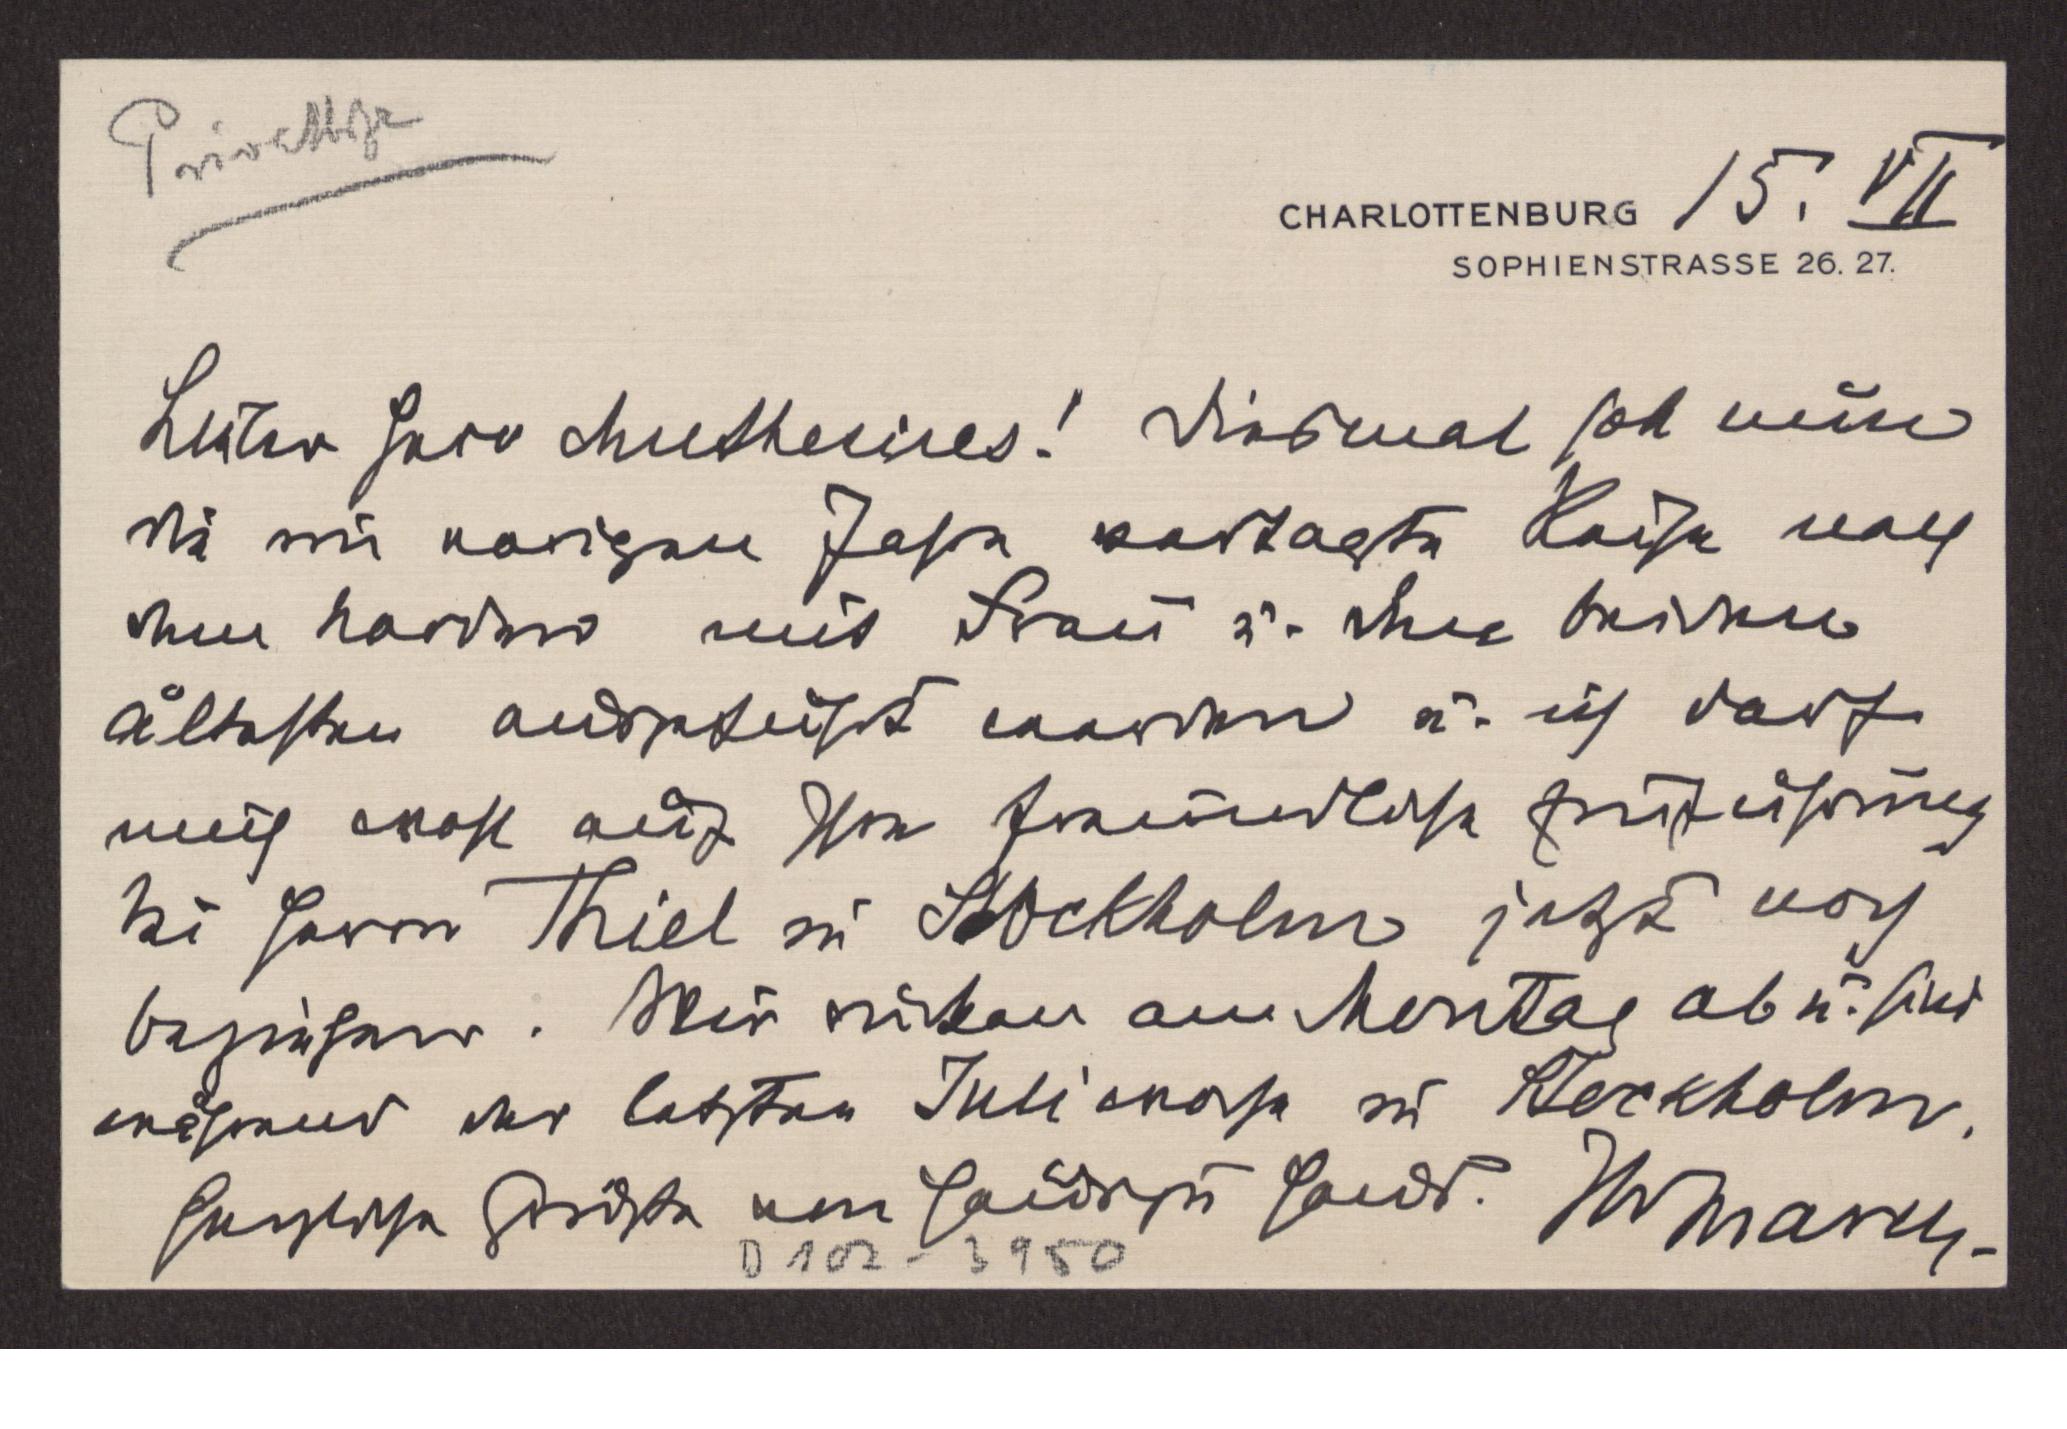 Privatbr
CHARLOTTENBURG 15. VII
SOPHIENSTRASSE 26. 27.
Lieber Herr Muthesius! Diesmal soll meine
die im vorigen Jahre vertagte Reise nach
dem Norden mit Frau u. den beiden
Ältesten ausgeführt werden u. ich darf
mich wohl auf Ihre freundliche Einführung
bei Herrn Thiel in Stockholm jetzt noch
beziehen. Wir rücken am Montag ab u. sind
während der letzten Juliwoche in Stockholm.
Herzliche Grüße von Haus zu Haus. Ihr
D 102-3950